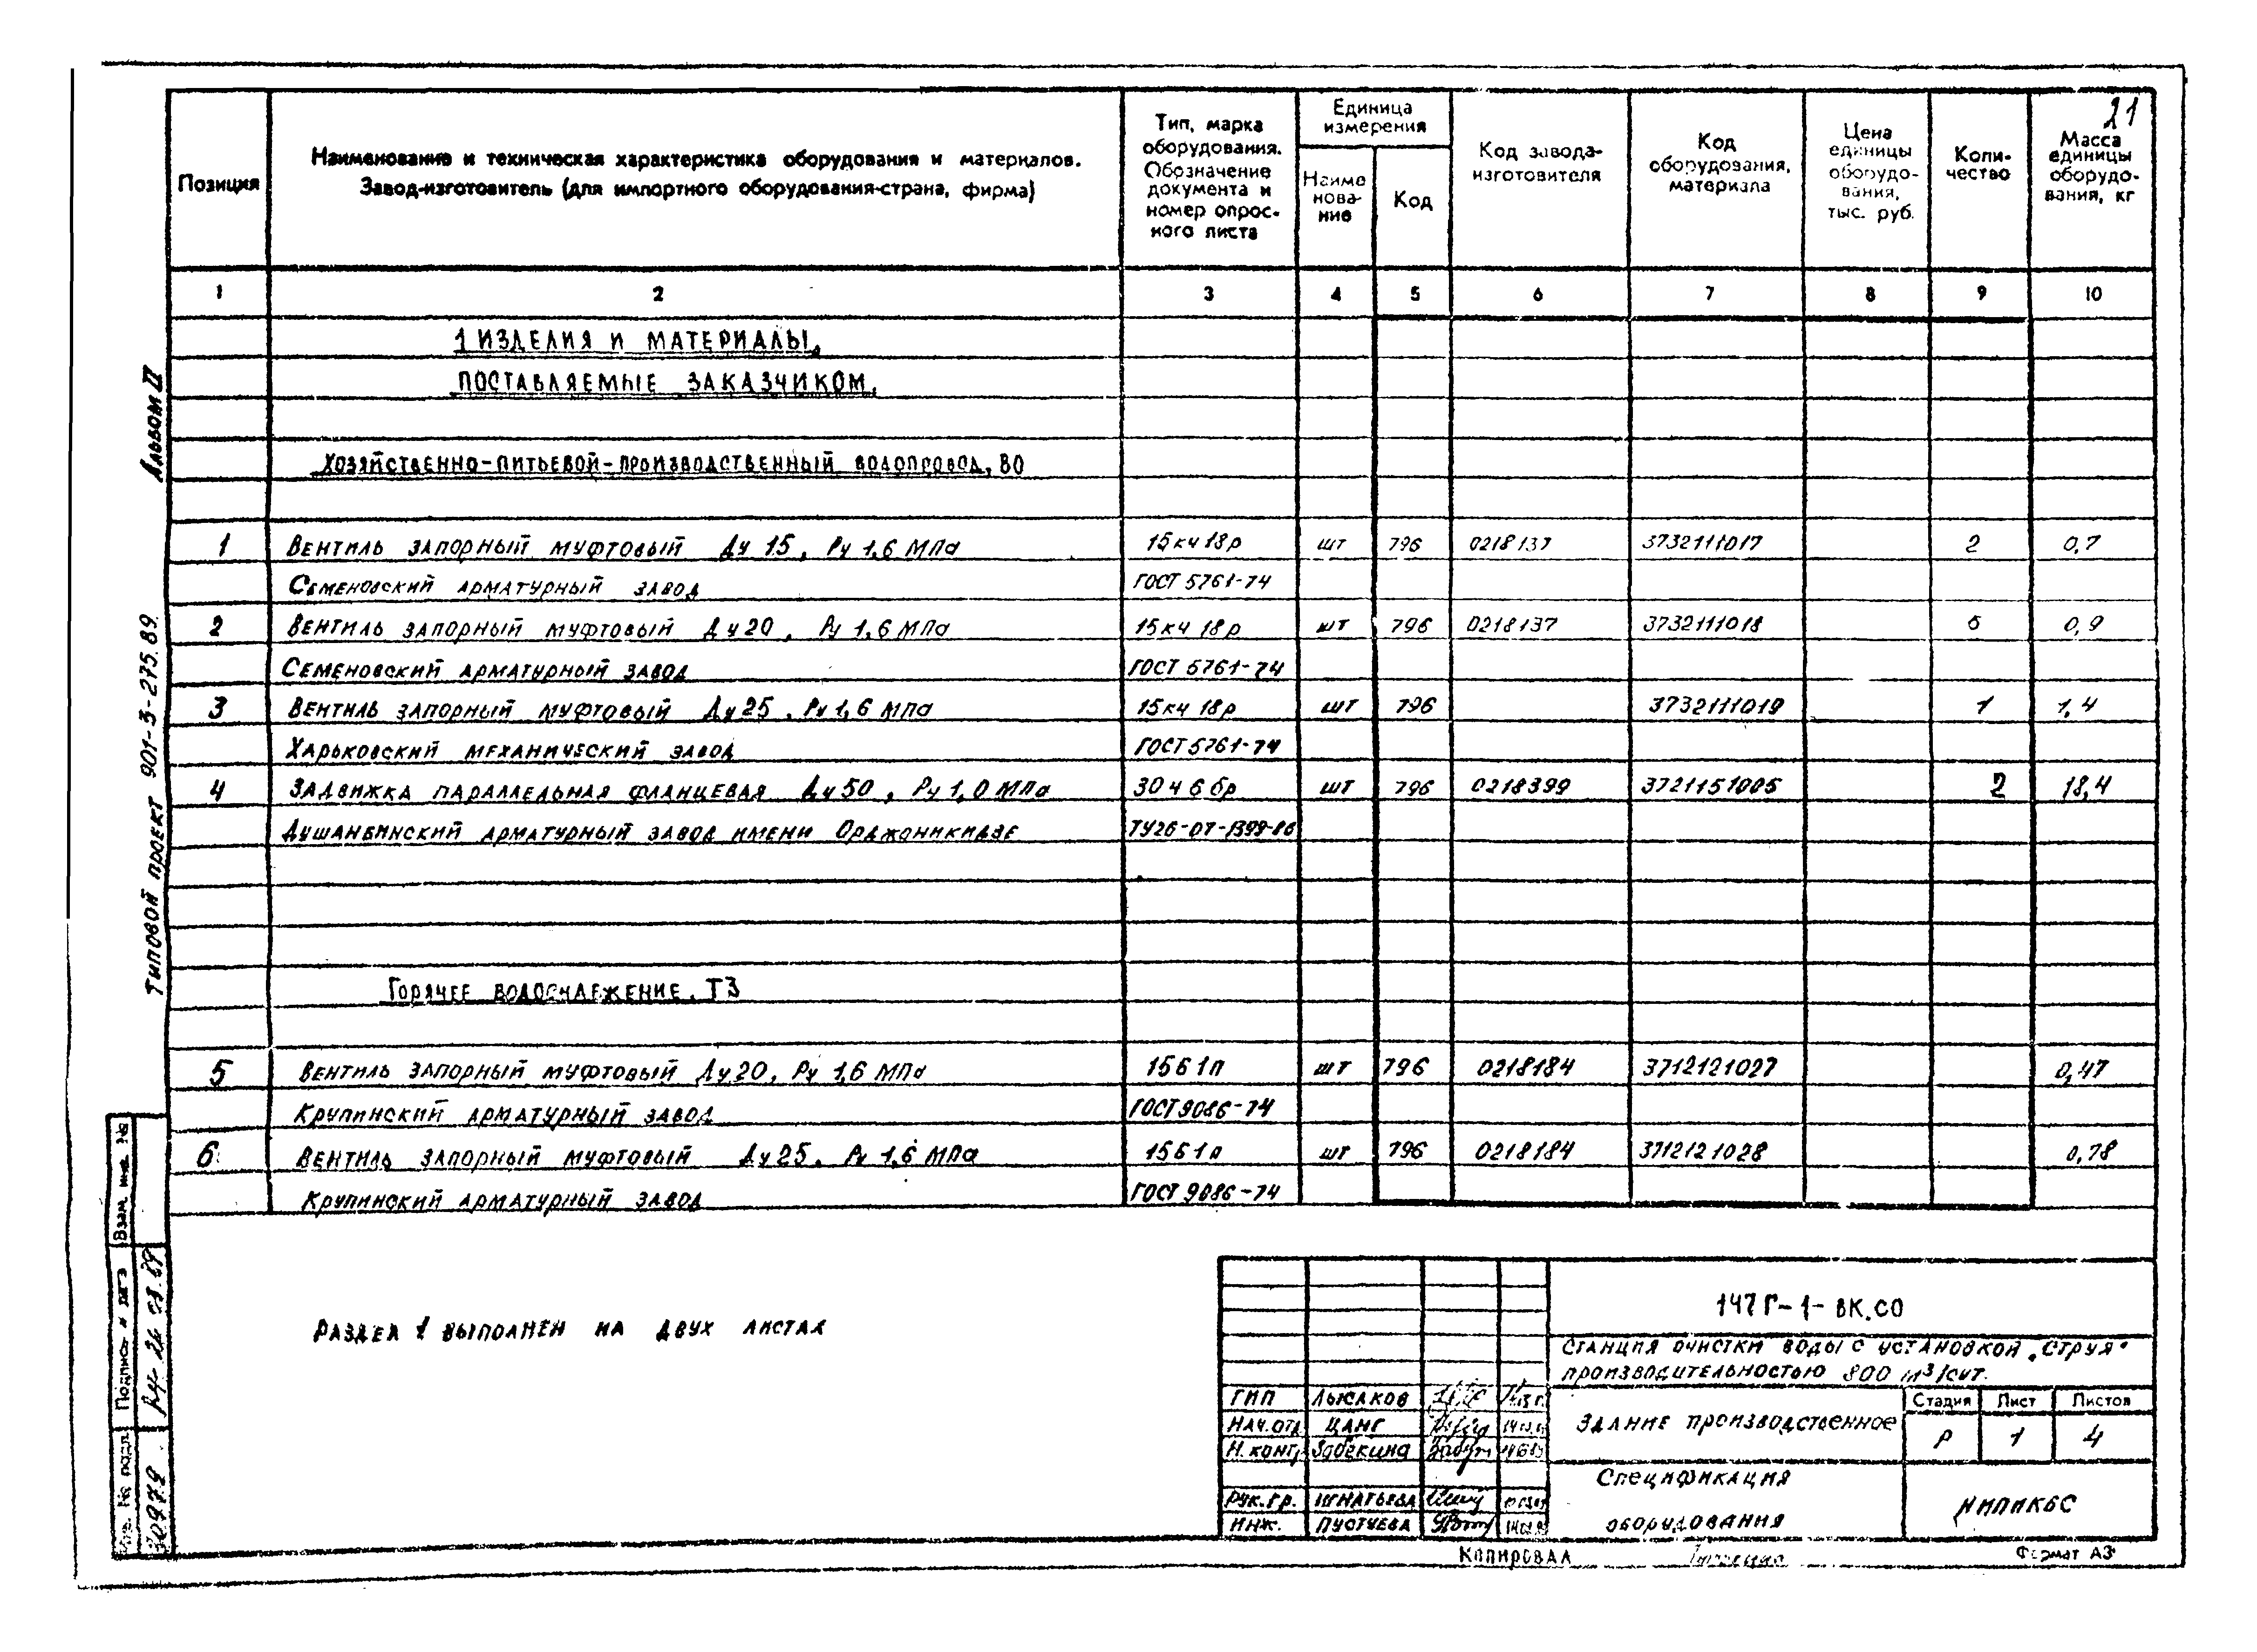 21
Позиция
Наименование и техническая характеристика оборудования и материалов.
Завод-изготовитель (для импортного оборудования-страна, фирма)
Тип, марка
оборудования.
Обозначение
документа и
номер опрос-
ного листа
Единица
измерения
Наиме
нова-
ние
Код
Код завода-
изготовителя
Код
оборудования,
материала
Цена
единицы
оборудо-
вания,
тыс. руб.
Коли-
чество
Масса
единицы
оборудо-
вания, кг
1 2 3 4 5 6 7 8 9 10
1 ИЗДЕЛИЯ И МАТЕРИАЛЫ,
ПОСТАВЛЯЕМЫЕ ЗАКАЗЧИКОМ.
ХОЗЯЙСТВЕННО-ПИТЬЕВОЙ-ПРОИЗВОДСТВЕННЫЙ ВОДОПРОВОД, В0
1 Вентиль запорный муфтовый Ду 15, Ру 1,6 МПа 15кч18р шт 796 0218137 3732111017 2 0,7
Семеновский арматурный завод ГОСТ 5761-74
2 Вентиль запорный муфтовый Ду20, Ру 1,6 МПа 15кч 18р шт 796 0218137 3732111018 0,9
Семеновский арматурный завод ГОСТ 5761-74
3 Вентиль запорный муфтовый Ду25, Ру 1,6 МПа 15кч 18р шт 796 3732111019 1 1,4
Харьковский механический завод ГОСТ 5761-74
4 Задвижка параллельная фланцевая Ду50, Ру 1,0 МПа 30ч6бр шт 796 0218399 3721151005 2 18,4
Душанбинский арматурный завод имени Орджоникидзе ТУ26-07-1399-86
Горячее водоснабжение. Т3
5 Вентиль запорный муфтовый Ду20, Ру 1,6 МПа 15б1п шт 796 0218184 3712121027 0,47
Крупинский арматурный завод ГОСТ 9086-74
6 Вентиль запорный муфтовый Ду25, Ру 1,6 МПа 15б1п шт 796 0218184 3712121028 0,78
Крупинский арматурный завод ГОСТ 9086-74
Раздел 1 выполнен на двух листах
Альбом II
Типовой проект 901-3-275.89.
Взам. инв. №
Подпись и дата
Инв. № подл.
30979
147Г-1-ВК.СО
Станция очистки воды с установкой „Струя"
производительностью 800 м³/сут.
ГИП Лысаков
Нач.отд Цанг
Н. контр Забекина
Рук.гр. Игнатьева
Инж. Пустуева
Здание производственное
Стадия Лист Листов
Р 1 4
Спецификация
оборудования
НИПИКБС
Копировал
Формат А3